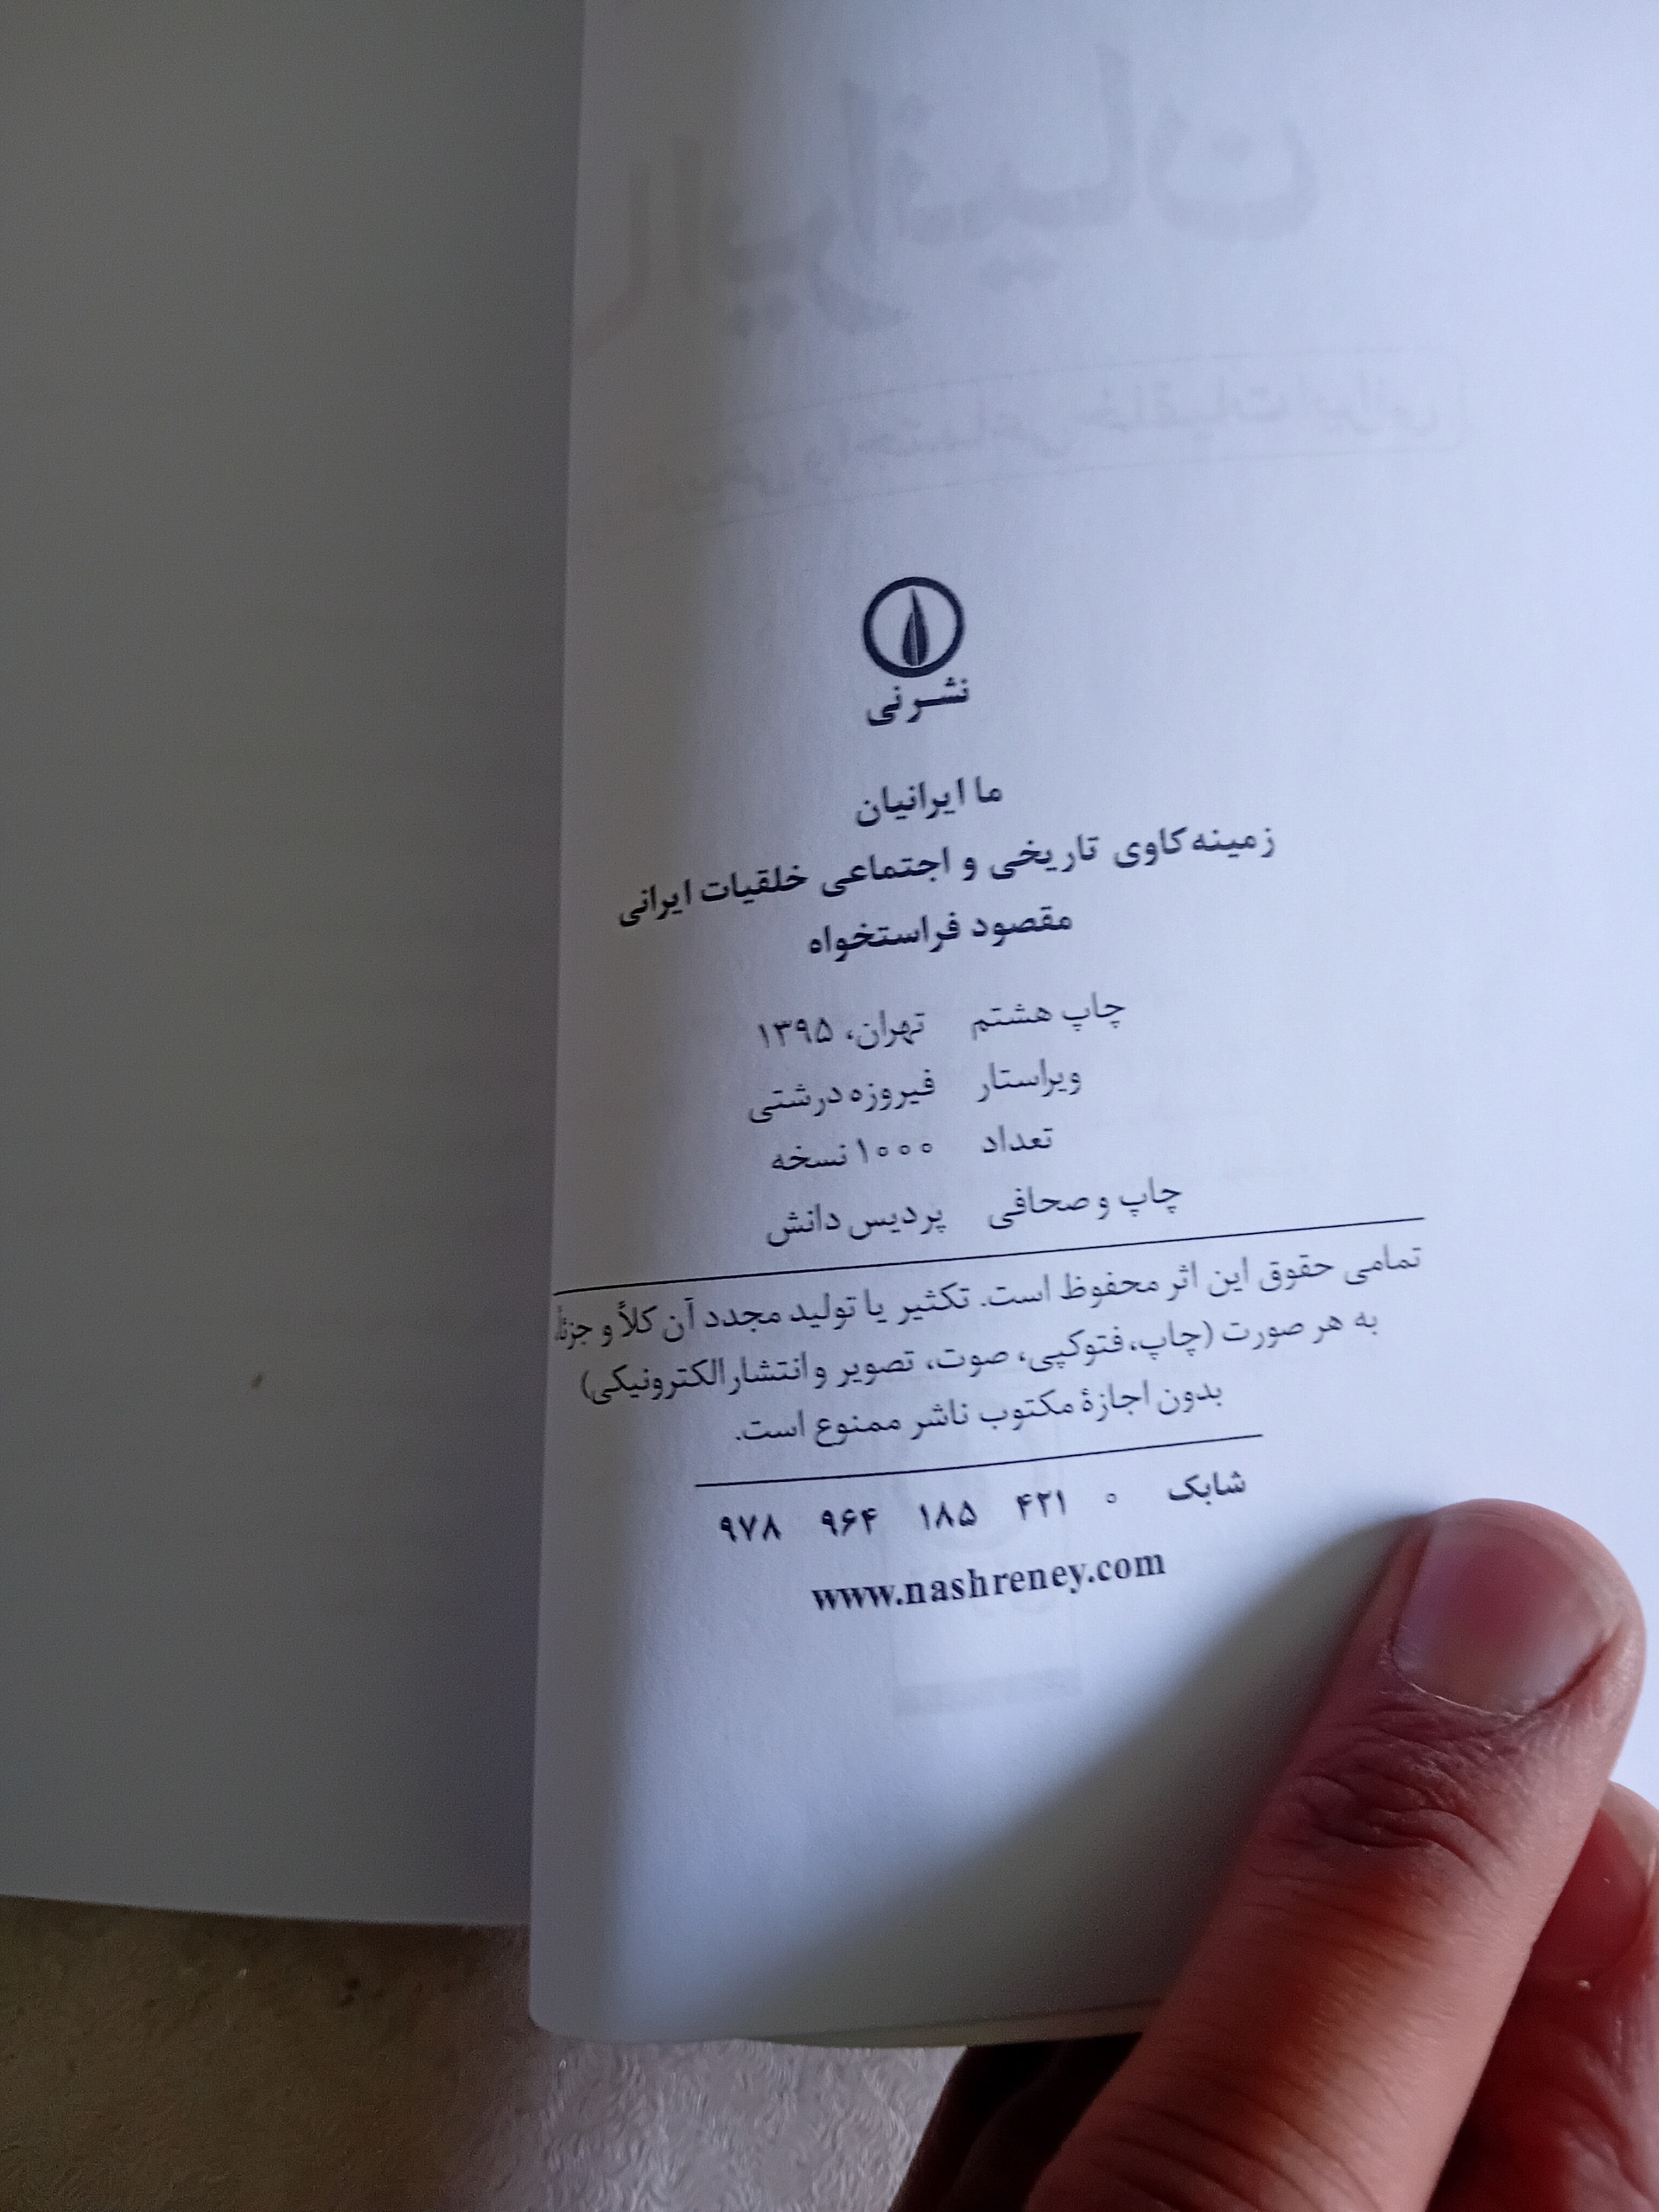 نشر نی
ما ایرانیان
زمینه‌کاوی تاریخی و اجتماعی خلقیات ایرانی
مقصود فراستخواه
چاپ هشتم تهران، ۱۳۹۵
ویراستار فیروزه درشتی
تعداد ۱۰۰۰ نسخه
چاپ و صحافی پردیس دانش
تمامی حقوق این اثر محفوظ است. تکثیر یا تولید مجدد آن کلاً و جزئاً
به هر صورت (چاپ، فتوکپی، صوت، تصویر و انتشار الکترونیکی)
بدون اجازهٔ مکتوب ناشر ممنوع است.
شابک ۰ ۴۲۱ ۱۸۵ ۹۶۴ ۹۷۸
www.nashreney.com